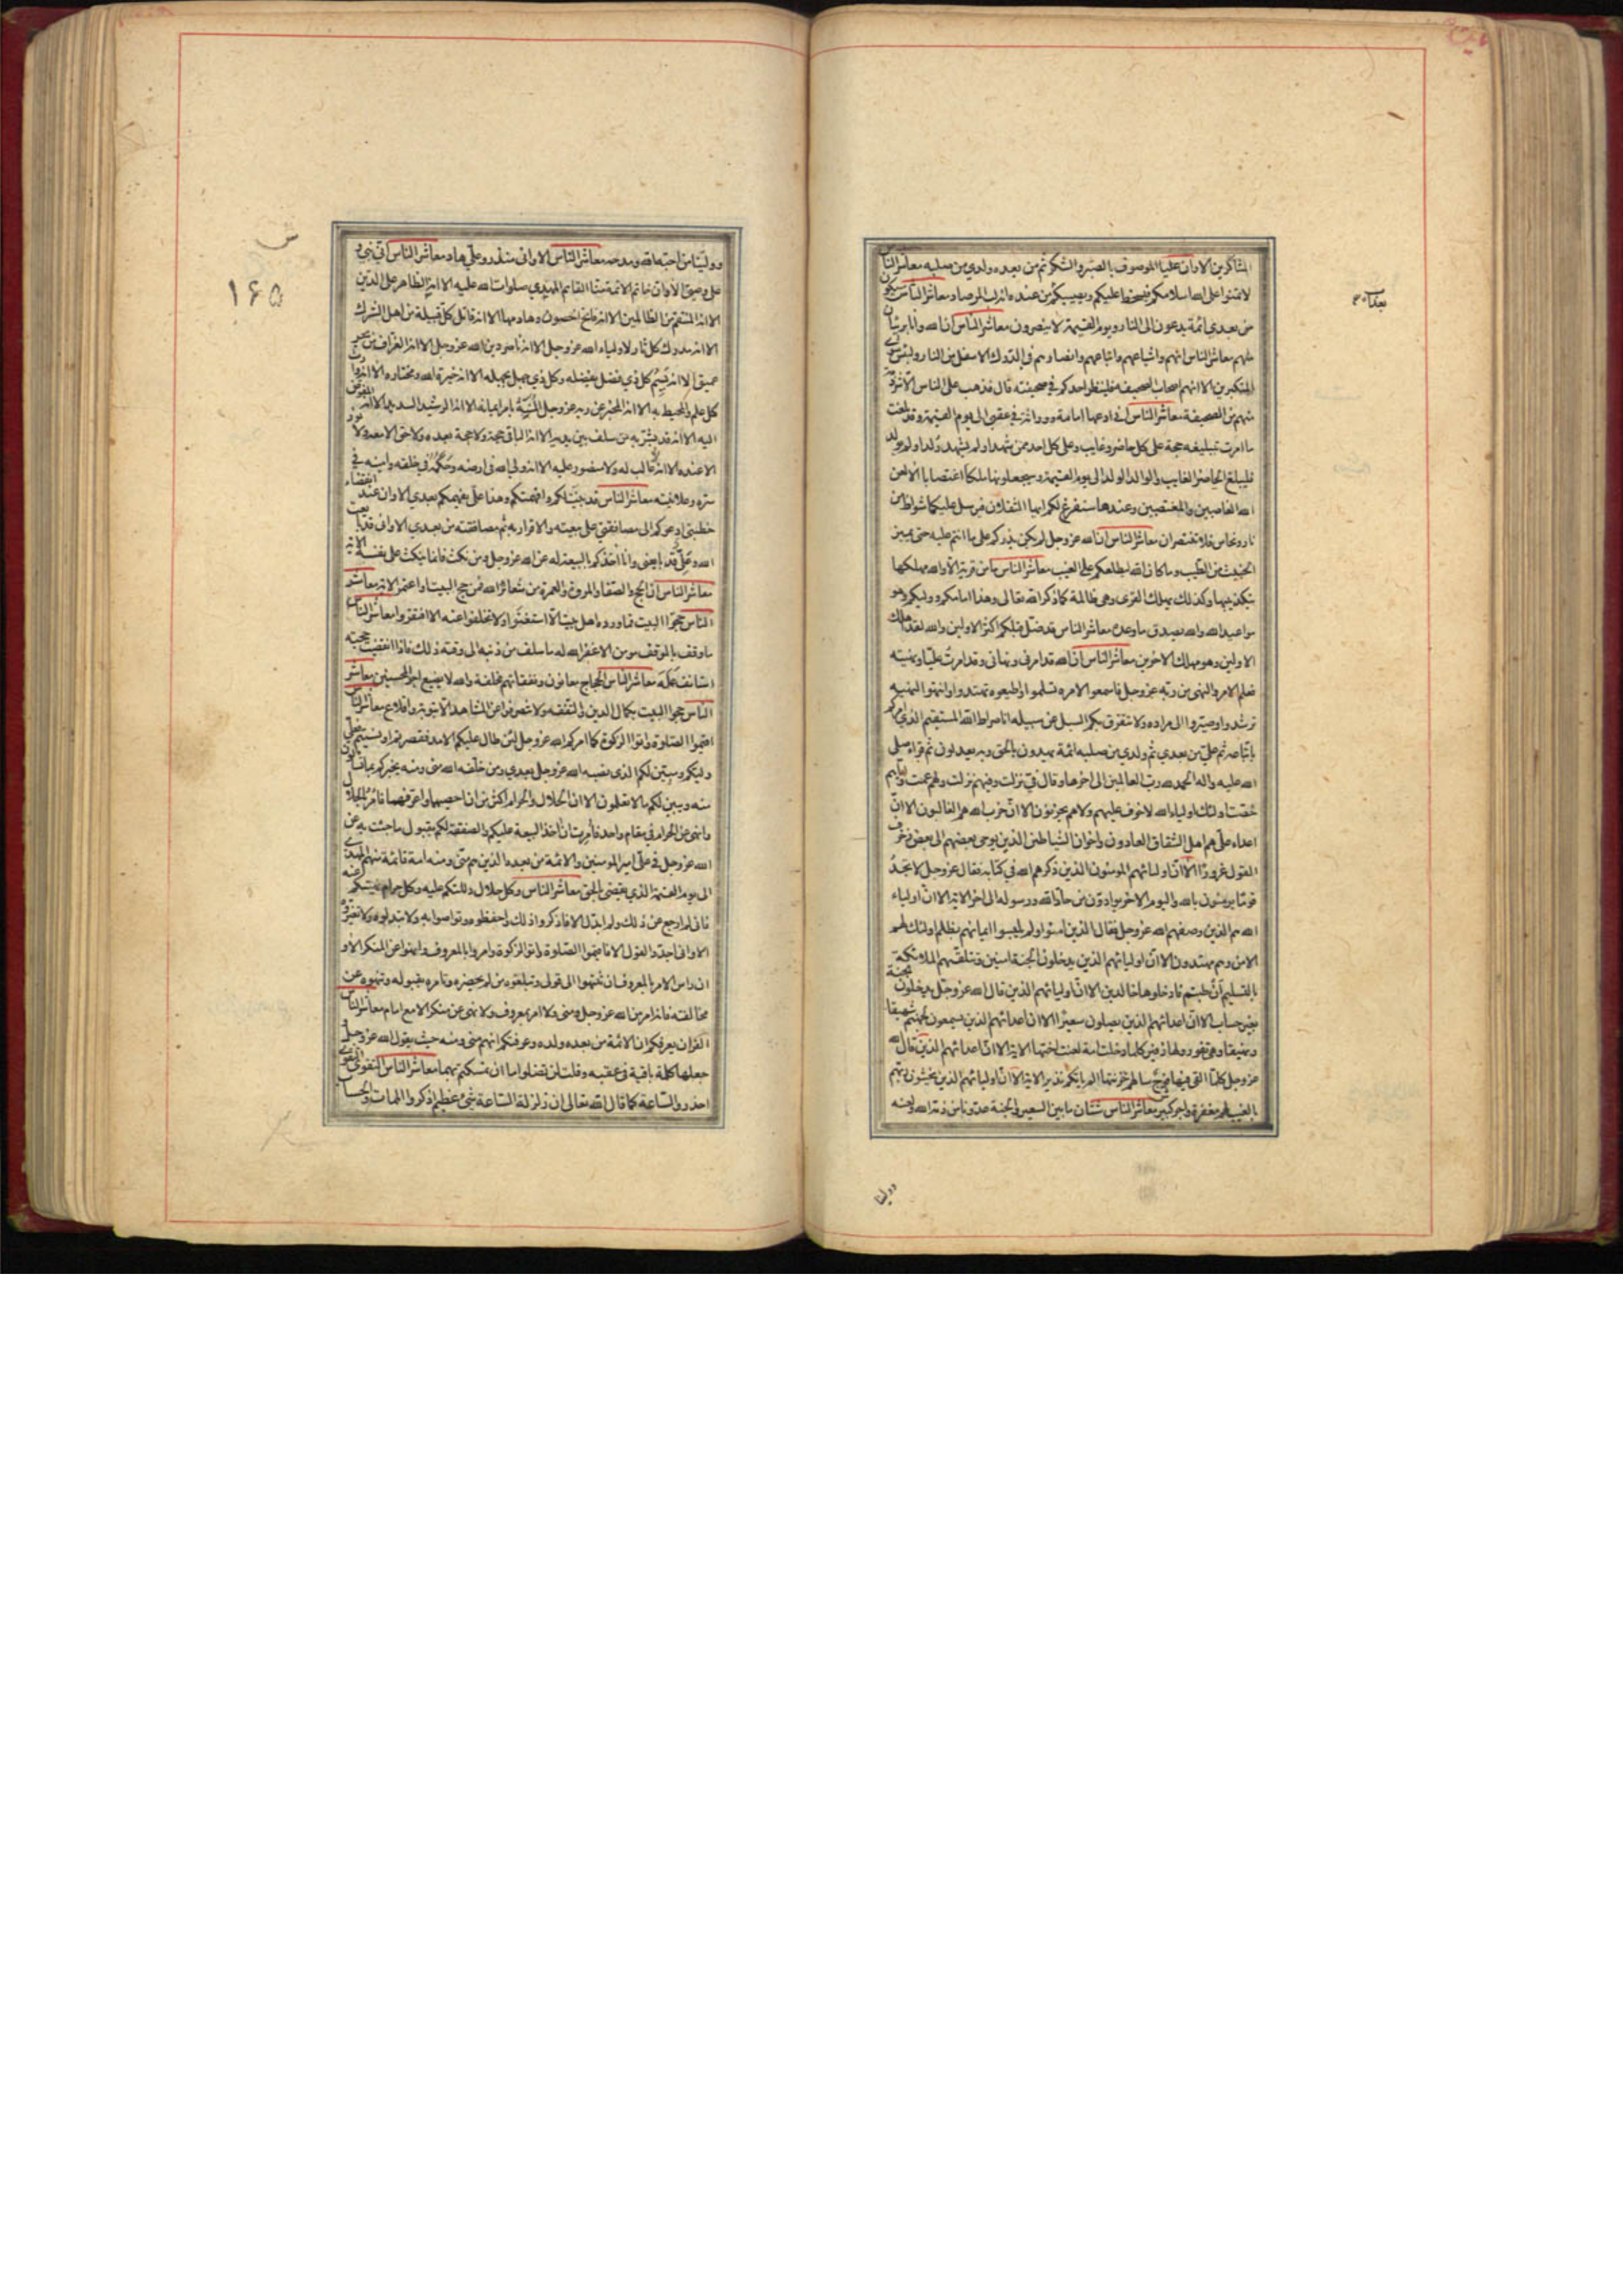 الشاكرين الا وان عليا الموصوف بالصبر والشكر ثم من بعده ولدي من صلبه معاشر الناس
لا تمنوا على الله اسلامكم فيسخط عليكم ويصيبكم من عنده انه لبالمرصاد معاشر الناس سيكون
من بعدي ائمة يدعون الى النار ويوم القيمة لا ينصرون معاشر الناس ان الله وانا بريئان
منهم معاشر الناس انهم واشياعهم واتباعهم وانصارهم في الدرك الاسفل من النار ولبئس مثوى
المتكبرين الا انهم اصحاب الصحيفه فلينظر احدكم في صحيفته قال فذهب على الناس الا شرذمة
منهم من الصحيفة معاشر الناس اني ادعها امامة ووراثة في عقبي الى يوم القيمة وقد بلغت
ما امرت تبليغه حجة على كل حاضر وغايب وعلى كل احد ممن شهد او لم يشهد ولد او لم يولد
فليبلغ الحاضر الغايب والوالد الولد الى يوم القيمة وسيجعلونها ملكا اغتصابا الا لعن
الله الغاصبين والمغتصبين وعندها سنفرغ لكم ايها الثقلان فيرسل عليكما شواظ من
نار ونحاس فلا تنتصران معاشر الناس ان الله عز وجل لم يكن يذركم على ما انتم عليه حتى يميز
الخبيث من الطيب وما كان الله ليطلعكم على الغيب معاشر الناس ما من قرية الا والله مهلكها
بتكذيبها وكذلك يهلك القرى وهي ظالمة كما ذكر الله تعالى وهذا امامكم ووليكم وهو
مواعيد الله والله يصدق ما وعده معاشر الناس قد ضل قبلكم اكثر الاولين والله لقد اهلك
الاولين وهو مهلك الاخرين معاشر الناس ان الله قد امرني ونهاني وقد امرت عليا ونهيته
فعلم الامر والنهي من ربه عز وجل فاسمعوا لامره تسلموا واطيعوه تهتدوا وانتهوا لنهيه
ترشدوا وصيروا الى مراده ولا تتفرق بكم السبل عن سبيله انا صراط الله المستقيم الذي امركم
باتباعه ثم علي من بعدي ثم ولدي من صلبه ائمة يهدون بالحق وبه يعدلون ثم قراء صلى
الله عليه واله الحمد لله رب العالمين الى اخرها وقال في نزلت وفيهم نزلت ولهم عمت واياهم
خصت اولئك اولياء الله لا خوف عليهم ولا هم يحزنون الا ان حزب الله هم الغالبون الا ان
اعداء علي هم اهل الشقاق العادون واخوان الشياطين الذين يوحي بعضهم الى بعض زخرف
القول غرورا الا ان اوليائهم المؤمنون الذين ذكرهم الله في كتابه فقال عز وجل لا تجد
قوما يؤمنون بالله واليوم الاخر يوادون من حاد الله ورسوله الى اخر الاية الا ان اولياء
الله هم الذين وصفهم الله عز وجل فقال الذين امنوا ولم يلبسوا ايمانهم بظلم اولئك لهم
الامن وهم مهتدون الا ان اوليائهم الذين يدخلون الجنة امنين وتتلقيهم الملائكة
بالتسليم ان طبتم فادخلوها خالدين الا ان اوليائهم الذين قال الله عز وجل يدخلون الجنة
بغير حساب الا ان اعدائهم الذين يصلون سعيرا الا ان اعدائهم الذين يسمعون لجهنم شهيقا
وهي تفور ولها زفير كلما دخلت امة لعنت اختها الاية الا ان اعدائهم الذين قال الله
عز وجل كلما القي فيها فوج سالهم خزنتها الم ياتكم نذير الاية الا ان اوليائهم الذين يخشون ربهم
بالغيب لهم مغفرة واجر كبير معاشر الناس شتان ما بين السعير والجنة عدونا من ذمه الله ولعنه
وولينا
وولينا من احبه الله ومدحه معاشر الناس الا واني منذر وعلي هاد معاشر الناس اني نبي و
علي وصيي الا وان خاتم الائمة منا القائم المهدي صلوات الله عليه الا انه الظاهر على الدين
الا انه المنتقم من الظالمين الا انه فاتح الحصون وهادمها الا انه قاتل كل قبيلة من اهل الشرك
الا انه مدرك كل ثار لاولياء الله عز وجل الا انه ناصر دين الله عز وجل الا انه الغراف من بحر
عميق الا انه يسم كل ذي فضل بفضله وكل ذي جهل بجهله الا انه خيرة الله ومختاره الا انه وارث
كل علم والمحيط به الا انه المخبر عن ربه عز وجل المنبه بامر ايمانه الا انه الرشيد السديد الا انه المفوض
اليه الا انه قد بشر به من سلف بين يديه الا انه الباقي حجة ولا حجة بعده ولا حق الا معه ولا نور
الا عنده الا انه لا غالب له ولا منصور عليه الا انه ولي الله في ارضه وحكمه في خلقه وامينه في
سره وعلانيته معاشر الناس قد بينت لكم وافهمتكم وهذا علي يفهمكم بعدي الا وان عند انقضاء
خطبتي ادعوكم الى مصافقتي على بيعته والاقرار به ثم مصافقته من بعدي الا واني قد بايعت
الله وعلي قد بايعني وانا اخذكم بالبيعة له عن الله عز وجل ومن نكث فانما ينكث على نفسه الاية
معاشر الناس ان الحج والصفا والمروة والعمرة من شعائر الله فمن حج البيت او اعتمر الاية معاشر
الناس حجوا البيت فما ورده اهل بيت الا استغنوا ولا تخلفوا عنه الا افتقروا معاشر الناس
ما وقف بالموقف مومن الا غفر الله له ما سلف من ذنبه الى وقته ذلك فاذا انقضت حجته
استانف عمله معاشر الناس الحجاج معانون ونفقاتهم مخلفة والله لا يضيع اجر المحسنين معاشر
الناس حجوا البيت بكمال الدين والتفقه ولا تنصرفوا عن المشاهد الا بتوبة واقلاع معاشر الناس
اقيموا الصلوة واتوا الزكوة كما امركم الله عز وجل لئن طال عليكم الامد فقصرتم او نسيتم فعلي
وليكم ومبين لكم الذي نصبه الله عز وجل بعدي ومن خلفه الله مني ومنه يخبركم بما تسألون
منه ويبين لكم ما لا تعلمون الا ان الحلال والحرام اكثر من ان احصيهما واعرفهما فامر بالحلال
وانهى عن الحرام في مقام واحد فامرت ان اخذ البيعة عليكم والصفقة لكم بقبول ما جئت به عن
الله عز وجل في علي امير المومنين والائمة من بعده الذين هم مني ومنه امة قائمة منهم المهدي
الى يوم القيمة الذي يقضي بالحق معاشر الناس وكل حلال دللتكم عليه وكل حرام نهيتكم عنه
فاني لم ارجع عن ذلك ولم ابدل الا فاذكروا ذلك واحفظوه وتواصوا به ولا تبدلوه ولا تغيروه
الا واني اجدد القول الا فاقيموا الصلوة واتوا الزكوة وامروا بالمعروف وانهوا عن المنكر الا و
ان راس الامر بالمعروف ان تنتهوا الى قولي وتبلغوه من لم يحضره وتامره بقبوله وتنهوه عن
مخالفته فانه امر من الله عز وجل ومني ولا امر بمعروف ولا نهي عن منكر الا مع امام معاشر الناس
القران يعرفكم ان الائمة من بعده ولده وعرفتكم انهم مني ومنه حيث يقول الله عز وجل
جعلها كلمة باقية في عقبه وقلت لن تضلوا ما ان تمسكتم بهما معاشر الناس التقوى التقوى
احذروا الساعة كما قال الله تعالى ان زلزلة الساعة شئ عظيم اذكروا الممات والحساب
۱۶۵